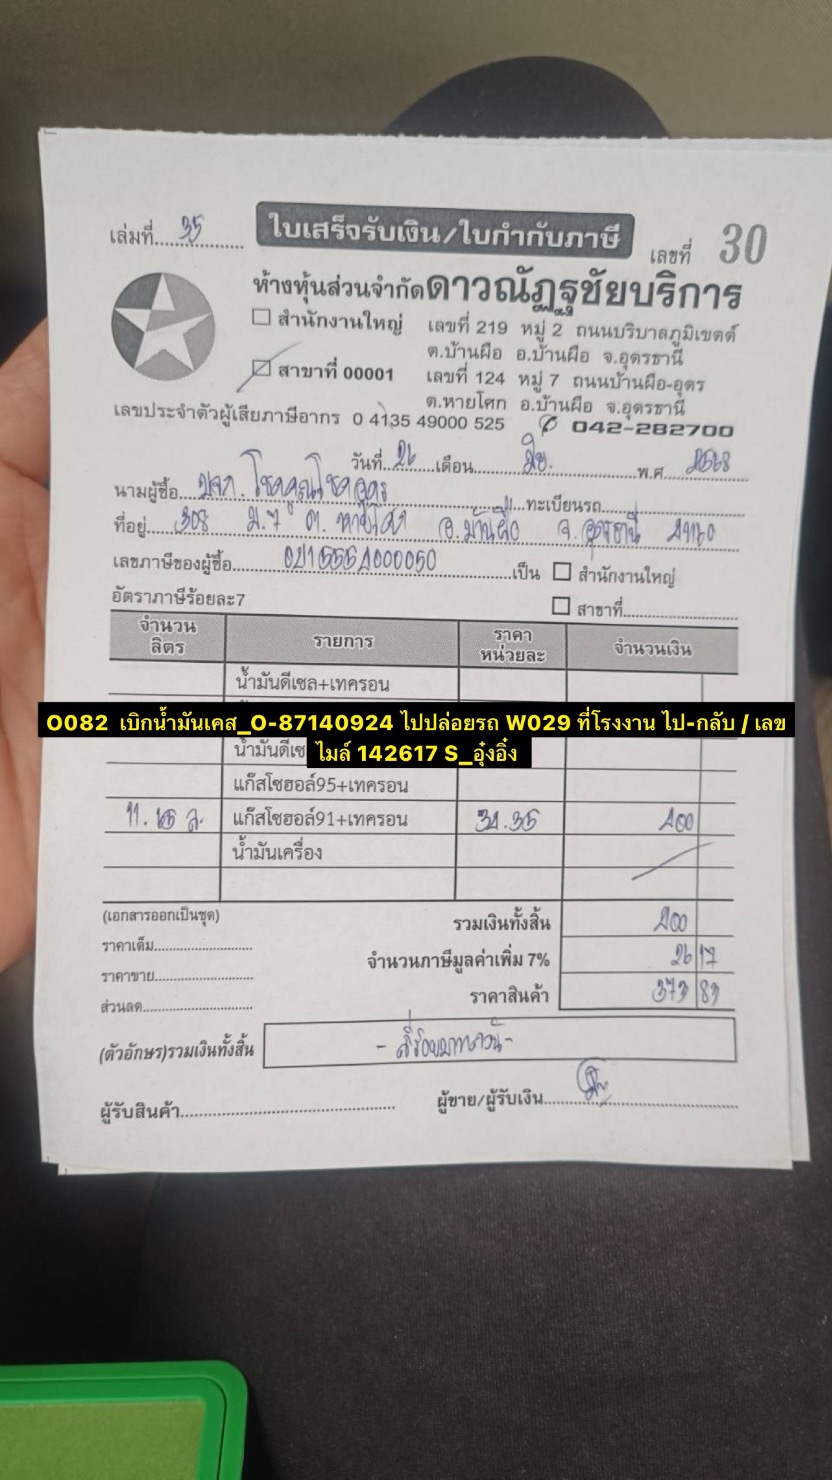 เล่มที่ 35
ใบเสร็จรับเงิน/ใบกำกับภาษี
เลขที่ 30
ห้างหุ้นส่วนจำกัดดาวณัฏฐชัยบริการ
สำนักงานใหญ่ เลขที่ 219 หมู่ 2 ถนนบริบาลภูมิเขตต์
ต.บ้านผือ อ.บ้านผือ จ.อุดรธานี
สาขาที่ 00001 เลขที่ 124 หมู่ 7 ถนนบ้านผือ-อุดร
ต.หายโศก อ.บ้านผือ จ.อุดรธานี
เลขประจำตัวผู้เสียภาษีอากร 0 4135 49000 525 ✆ 042-282700
วันที่ 26 เดือน มิย. พ.ศ. 2568
นามผู้ซื้อ บจก. โชคคูณโชคอุดร ทะเบียนรถ
ที่อยู่ 308 ม.7 ต. หายโศก อ.บ้านผือ จ.อุดรธานี 41160
เลขภาษีของผู้ซื้อ เป็น สำนักงานใหญ่
อัตราภาษีร้อยละ7 สาขาที่
จำนวนลิตร รายการ ราคาหน่วยละ จำนวนเงิน
น้ำมันดีเซล+เทครอน
O082 เบิกน้ำมันเคส_O-87140924 ไปปล่อยรถ W029 ที่โรงงาน ไป-กลับ / เลข
ไมล์ 142617 S_อุ๋งอิ๋ง
น้ำมันดีเซ
แก๊สโซฮอล์95+เทครอน
11. ล. แก๊สโซฮอล์91+เทครอน 34.35 400
น้ำมันเครื่อง
(เอกสารออกเป็นชุด) รวมเงินทั้งสิ้น 400
ราคาเต็ม จำนวนภาษีมูลค่าเพิ่ม 7% 26 17
ราคาขาย ราคาสินค้า 373 83
ส่วนลด
(ตัวอักษร)รวมเงินทั้งสิ้น - สี่ร้อยบาทถ้วน -
ผู้รับสินค้า ผู้ขาย/ผู้รับเงิน